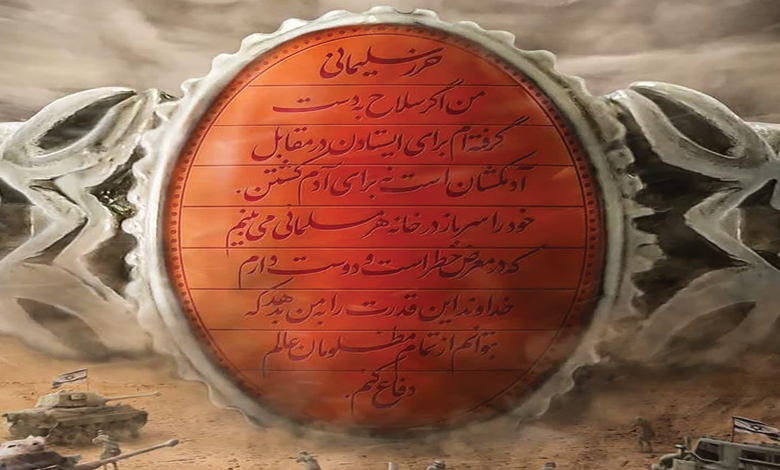 حرز سلیمانی
من اگر سلاح بدست
گرفته ام برای ایستادن در مقابل
آدمکشان است نه برای آدم کشتن.
خود را سرباز در خانه هر مسلمانی می بینم
که در معرض خطر است و دوست دارم
خداوند این قدرت را به من بدهد که
بتوانم از تمام مظلومان عالم
دفاع کنم.